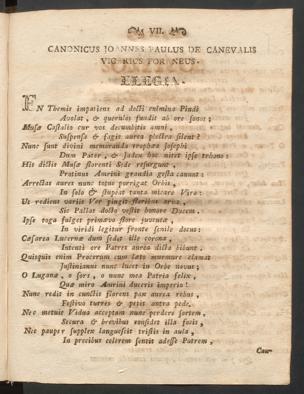 VII.
CANONICUS JOANNES PAULUS DE CANEVALIS
VIC RIUS FOR NEUS.
ELEGIA.
EN Themis impatiens ad docti culmina Pindi
Avolat, & querulis fundit ab ore sonos:
Musæ Castalio cur vos decumbitis antri,
Suspensa & fagis aurea plectra silent?
Nunc sunt divini memoranda trophæa Josephi
Dum Pater, & Judex huc nitet ipse throno:
Hic dictis Musæ florenti Sede resurgunt,
Protinus Amrini grandia gesta canunt:
Arrectas aures nunc totus porrigat Orbis,
In solo & stupeat tanta micare Viro:
Ut rediens variis Ver pingit floribus arva,
Sic Pallas docto vestit honore Ducem.
Ipse toga fulget primævo flore juventæ,
In viridi legitur fronte senile decus:
Cæsarea Lucernæ dum sedet ille corona,
Intenti ore Patres aurea dicta bibunt.
Quisquis enim Procerum cum læto murmure clamat
Justinianus nunc lucet in Orbe novus:
O Lugana, o sors, o nunc mea Patria felix,
Quæ miro Amrini duceris imperio!
Nunc redit in cunctis florens pax aurea rebus,
Festivo turres & petit antra pede.
Nec metuit Vidua acceptam nunc perdere sortem,
Secura & brevibus considet illa focis,
Nec pauper supplex languescit tristis in aula,
In precibus celerem sentit adesse Patrem,